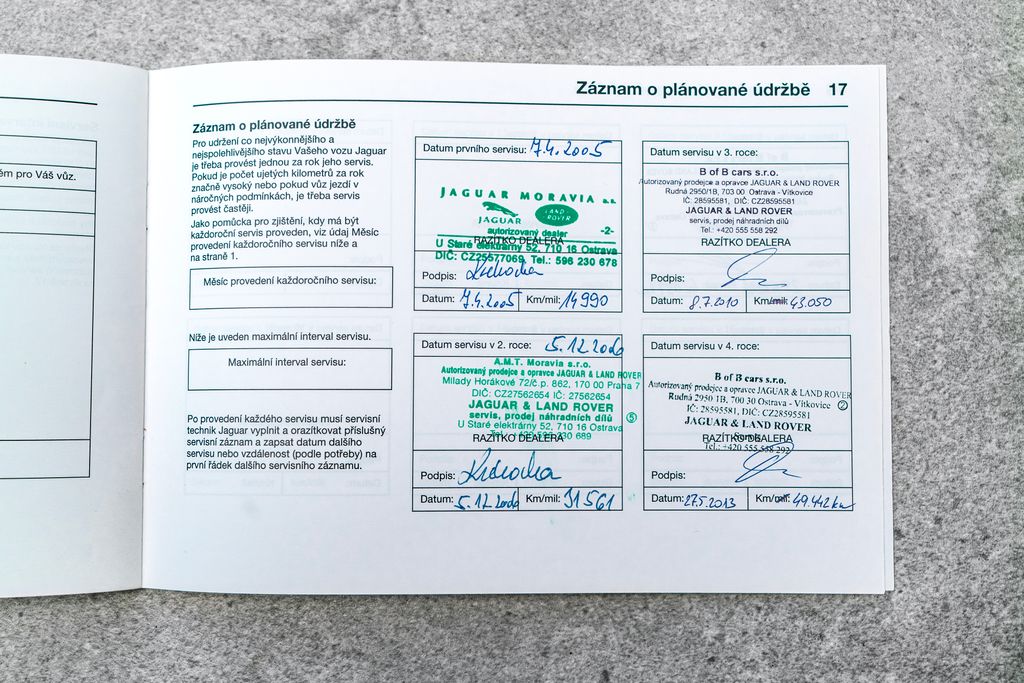 ém pro Váš vůz.
Záznam o plánované údržbě 17
Záznam o plánované údržbě
Pro udržení co nejvýkonnějšího a
nejspolehlivějšího stavu Vašeho vozu Jaguar
je třeba provést jednou za rok jeho servis.
Pokud je počet ujetých kilometrů za rok
značně vysoký nebo pokud vůz jezdí v
náročných podmínkách, je třeba servis
provést častěji.
Jako pomůcka pro zjištění, kdy má být
každoroční servis proveden, viz údaj Měsíc
provedení každoročního servisu níže a
na straně 1.
Měsíc provedení každoročního servisu:
Níže je uveden maximální interval servisu.
Maximální interval servisu:
Po provedení každého servisu musí servisní
technik Jaguar vyplnit a orazítkovat příslušný
servisní záznam a zapsat datum dalšího
servisu nebo vzdálenost (podle potřeby) na
první řádek dalšího servisního záznamu.
Datum prvního servisu: 7.4.2005
JAGUAR MORAVIA a.s.
JAGUAR LAND ROVER
autorizovaný dealer -2-
RAZÍTKO DEALERA
U Staré elektrárny 52, 710 16 Ostrava
DIČ: CZ25577069, Tel.: 596 230 678
Podpis:
Datum: 7.4.2005 Km/mil: 14990
Datum servisu v 2. roce: 5.12.2006
A.M.T. Moravia s.r.o.
Autorizovaný prodejce a opravce JAGUAR & LAND ROVER
Milady Horákové 72/č.p. 862, 170 00 Praha 7
DIČ: CZ27562654 IČ: 27562654
JAGUAR & LAND ROVER
servis, prodej náhradních dílů 5
U Staré elektrárny 52, 710 16 Ostrava
RAZÍTKO DEALERA
Podpis:
Datum: 5.12.2006 Km/mil: 31561
Datum servisu v 3. roce:
B of B cars s.r.o.
Autorizovaný prodejce a opravce JAGUAR & LAND ROVER
Rudná 2950/1B, 703 00 Ostrava - Vítkovice
IČ: 28595581, DIČ: CZ28595581
JAGUAR & LAND ROVER
servis, prodej náhradních dílů
Tel.: +420 555 558 292
RAZÍTKO DEALERA
Podpis:
Datum: 8.7.2010 Km/mil: 43.050
Datum servisu v 4. roce:
B of B cars s.r.o.
Autorizovaný prodejce a opravce JAGUAR & LAND ROVER
Rudná 2950 1B, 700 30 Ostrava - Vítkovice 2
IČ: 28595581, DIČ: CZ28595581
JAGUAR & LAND ROVER
RAZÍTKO DEALERA
Tel.: +420 555 558 292
Podpis:
Datum: 27.5.2013 Km/mil: 49.442 km